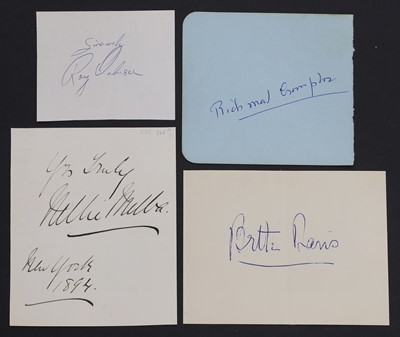 Sincerely
Roy Orbison
Richmal Crompton
Yrs Truly
Nellie Melba.
New York
1894.
Bette Davis